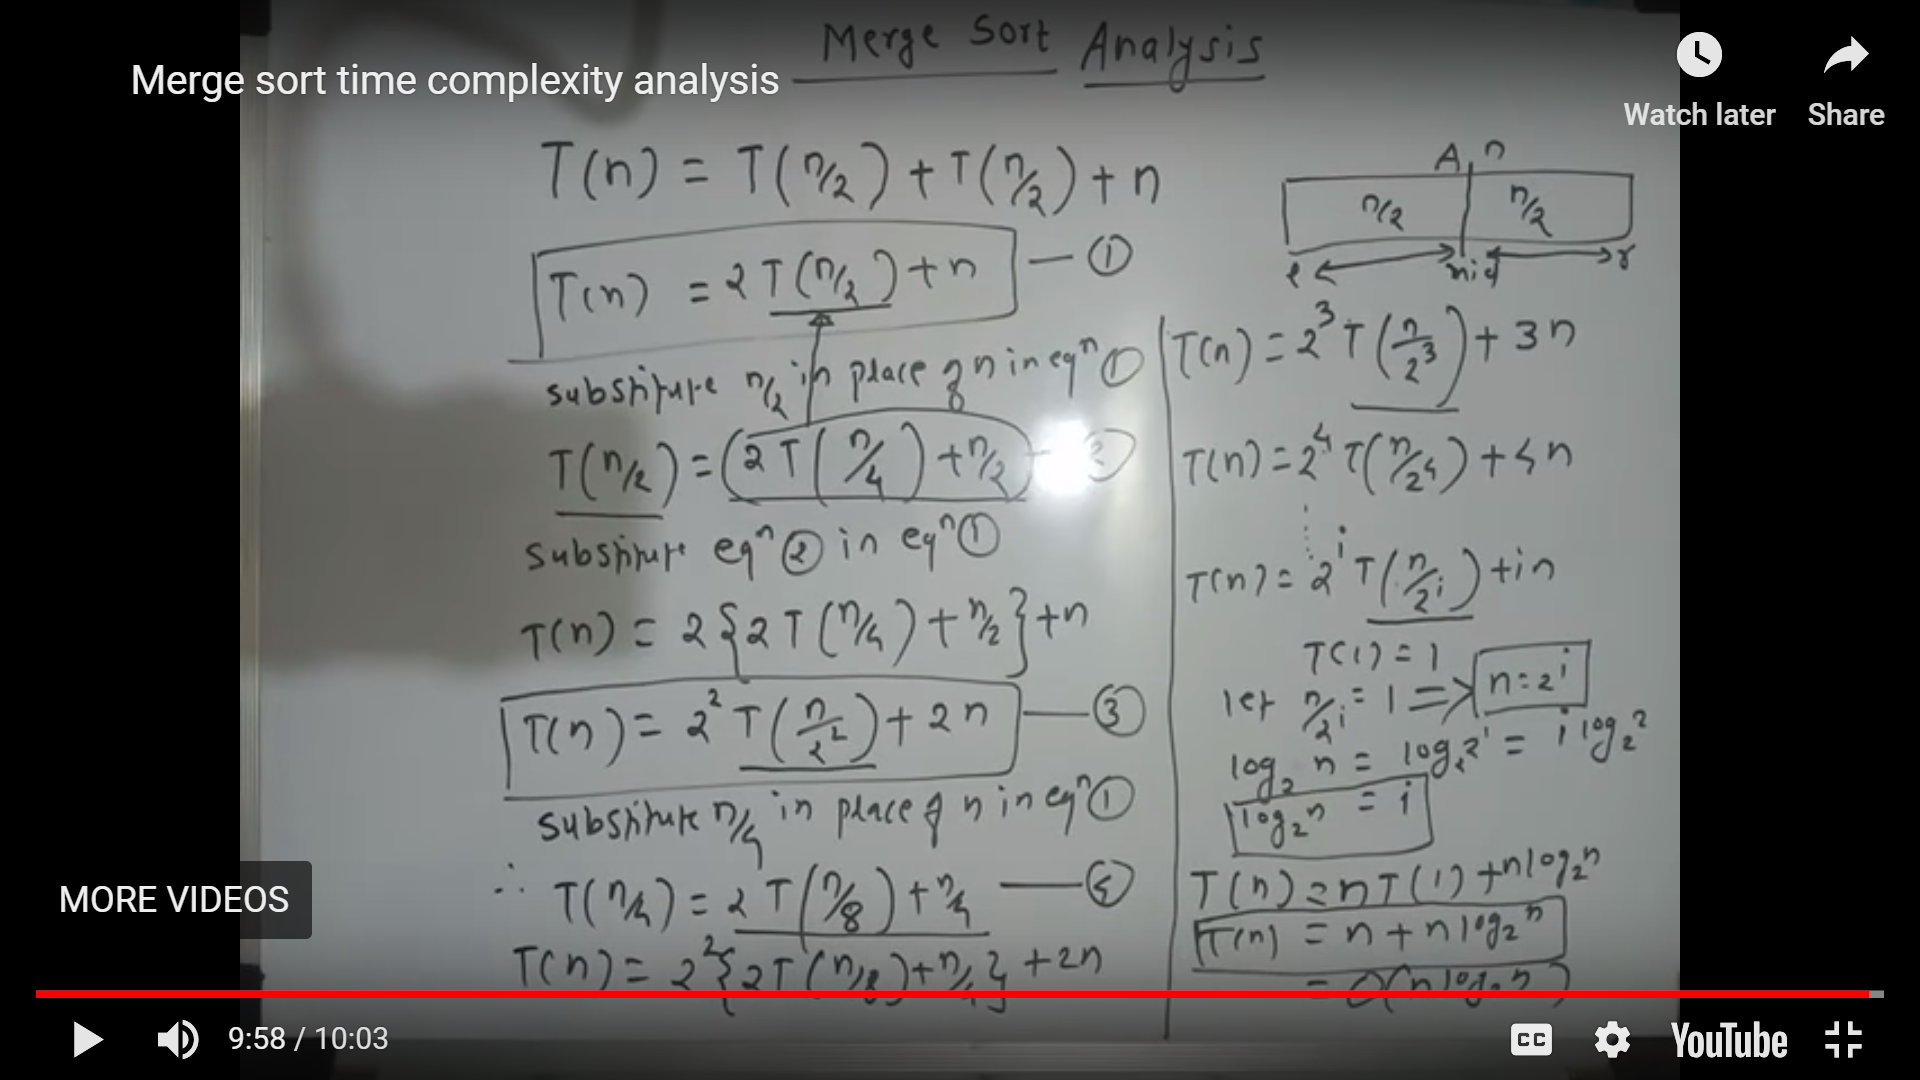 Merge Sort Analysis
Merge sort time complexity analysis
Watch later
Share
T(n) = T(n/2) + T(n/2) + n
T(n) = 2T(n/2) + n — ①
substiture n/2 in place of n in eqⁿ ①
T(n/2) = (2T(n/4) + n/2) 2
substiture eqⁿ ② in eqⁿ ①
T(n) = 2{2T(n/4) + n/2} + n
T(n) = 2² T(n/2²) + 2n — ③
substiture n/4 in place of n in eqⁿ ①
∴ T(n/4) = 2T(n/8) + n/4 — ④
T(n) = 2²{2T(n/8) + n/4} + 2n
A n
n/2 n/2
l mid r
T(n) = 2³ T(n/2³) + 3n
T(n) = 2⁴ T(n/2⁴) + 4n
T(n) = 2ⁱ T(n/2ⁱ) + in
T(1) = 1
let n/2ⁱ = 1 => n = 2ⁱ
log₂ n = log₂ 2ⁱ = i log₂ 2
log₂ n = i
T(n) = nT(1) + n log₂ n
T(n) = n + n log₂ n
= O(n log₂ n)
MORE VIDEOS
9:58 / 10:03
CC
YouTube